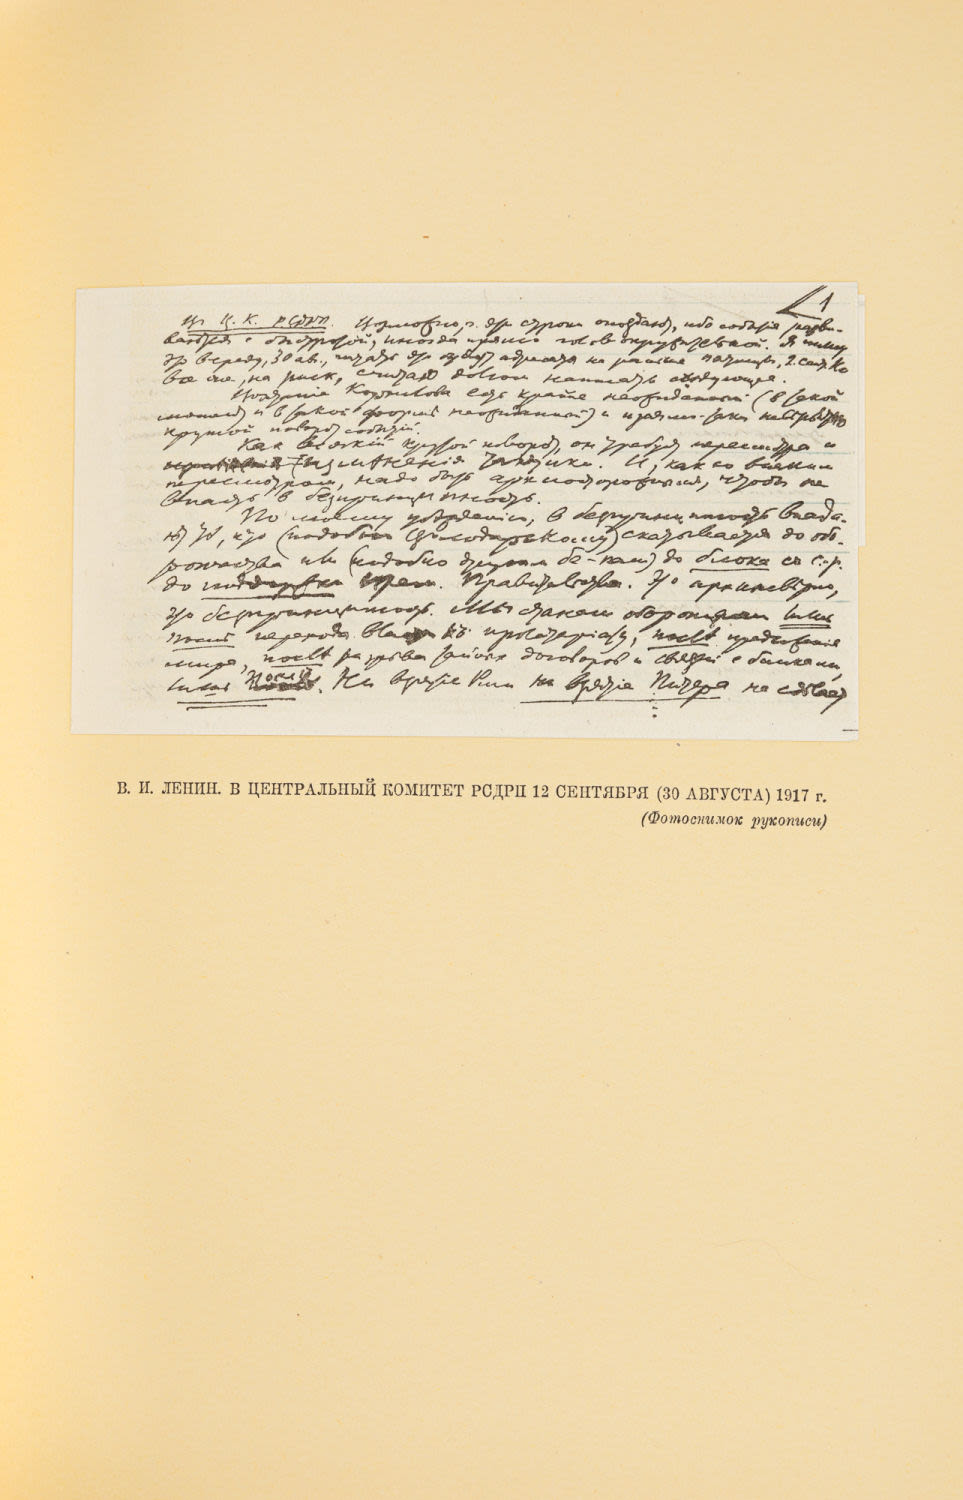 1
В Ц. К. РСДРП. Возможно, ч. эти строки опоздают, ибо события разви-
ваются с быстротой, иногда прямо головокружительной. Я пишу
это в среду, 30 авг., читать это будут адресаты не раньше пятницы, 2 сент. Но
все же, на риск, считаю долгом написать следующее.
Восстание Корнилова есть крайне неожиданный (в такой
момент и в такой форме неожиданный) и прямо-таки невероятно
крутой поворот событий.
Как всякий крутой поворот, он требует пересмотра и
изменения тактики. И, как со всяким
пересмотром, надо быть архиосторожным, чтобы не
впасть в беспринципность.
По моему убеждению, в беспринципность впада-
ют те, кто (подобно Володарскому) скатывается до обо-
рончества или (подобно другим бе-кам) до блока со с.-р.
до поддержки Врем. Правительства. Это архиневерно,
это беспринципность. Мы станем оборонцами лишь
послѣ перехода власти къ пролетариату, послѣ предложения
мира, послѣ разрыва тайных договоров и связей с банками,
лишь послѣ. Ни взятіе Риги ни взятіе Питера не сделает
В. И. ЛЕНИН. В ЦЕНТРАЛЬНЫЙ КОМИТЕТ РСДРП 12 СЕНТЯБРЯ (30 АВГУСТА) 1917 г.
(Фотоснимок рукописи)